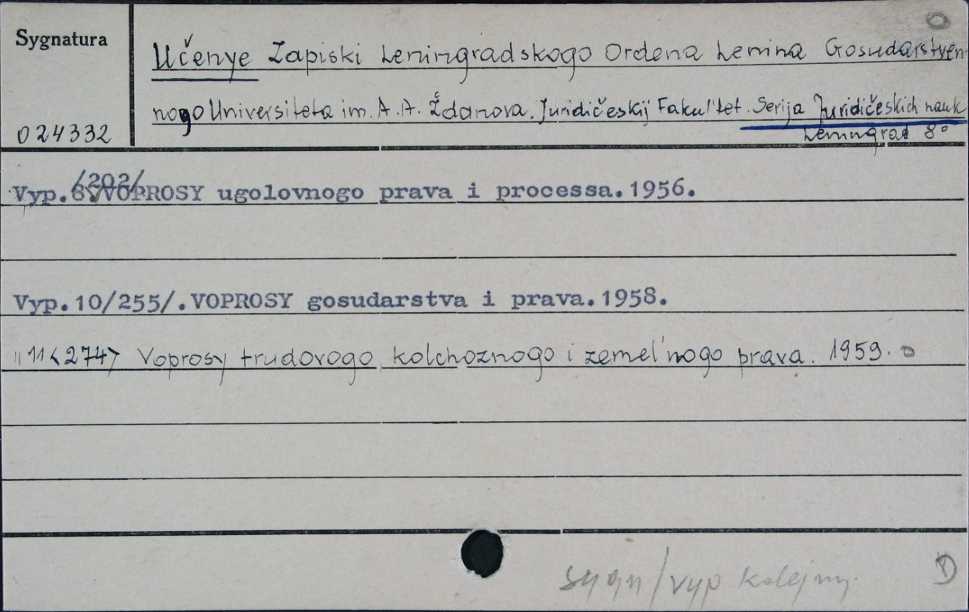 Sygnatura
Učenye Zapiski Leningradskogo Ordena Lenina Gosudarstven-
nogo Universiteta im. A. A. Ždanova. Juridičeskij Fakul'tet. Serija Juridičeskich nauk
024332
Leningrad 8°
Vyp. /202/ VOPROSY ugolovnogo prava i processa. 1956.
Vyp. 10/255/. VOPROSY gosudarstva i prava. 1958.
" 11 <274> Voprosy trudovogo kolchoznogo i zemel'nogo prava. 1959.
sygn/vyp kolejny.
D